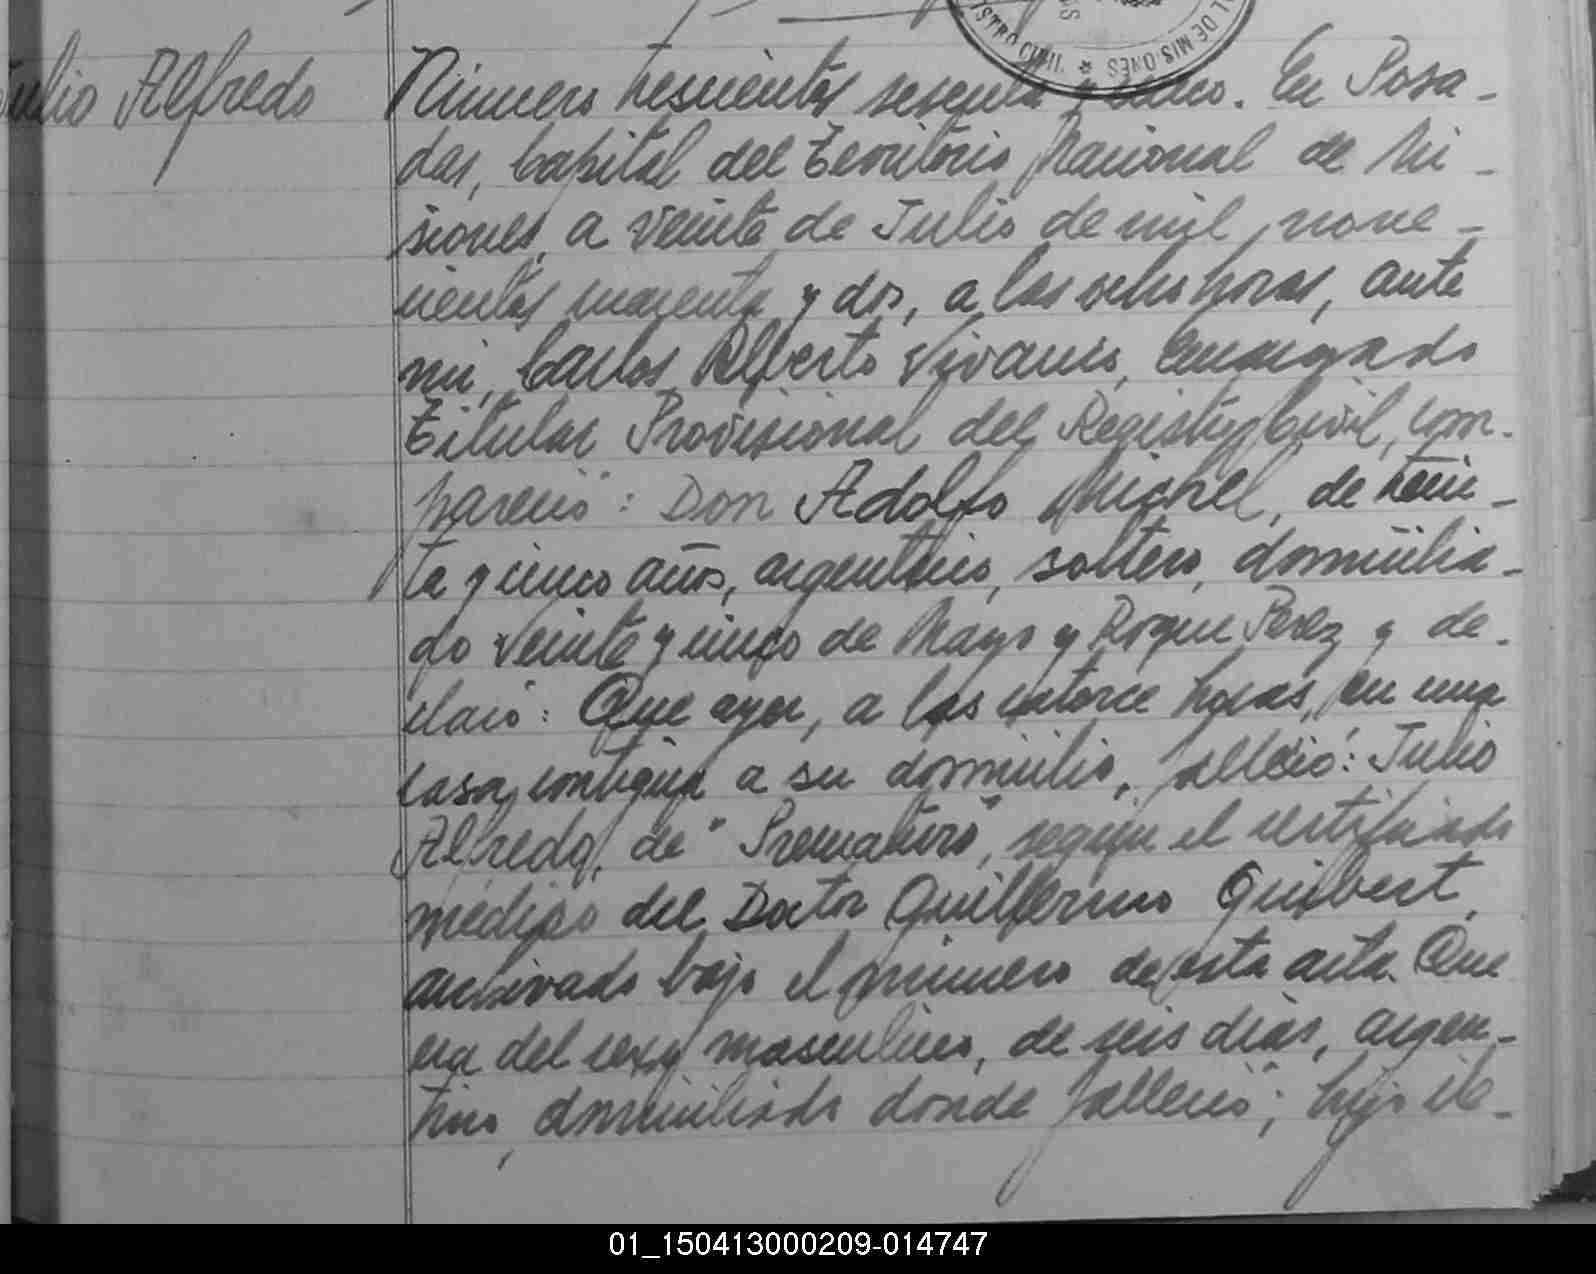 Julio Alfredo
Número trescientos sesenta y cinco. En Posa-
das, Capital del Territorio Nacional de Mi-
siones, a veinte de Julio de mil nove-
cientos cuarenta y dos, a las ocho horas, ante
mi, Carlos Alberto Vivanco, Encargado
Titular Provisional del Registro Civil, com-
pareció: Don Adolfo Michel, de trein-
ta y cinco años, argentino, soltero, domicilia-
do veinte y cinco de Mayo y Roque Perez y de-
claró: Que ayer, a las catorce horas, en una
casa contigua a su domicilio, falleció: Julio
Alfredo, de "Prematuro", según el certificado
médico del Doctor Guillermo Guibert,
archivado bajo el número de esta acta. Que
era del sexo masculino, de seis días, argen-
tino, domiciliado donde falleció; hijo ile-
REGISTRO CIVIL * DE MISIONES
01_150413000209-014747